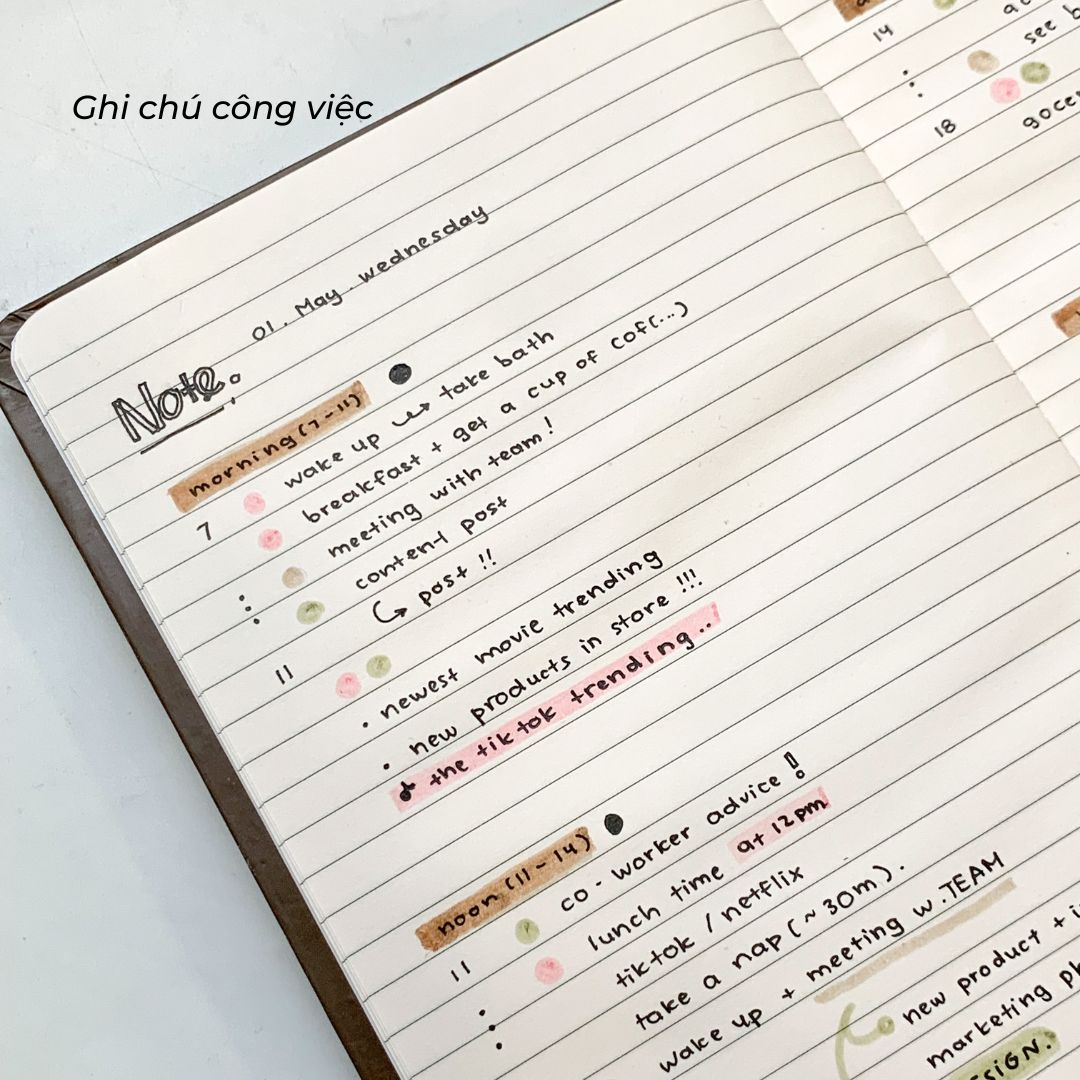 Ghi chú công việc
01. May. wednesday
Note.
morning (7-11)
7 wake up ↝ take bath
breakfast + get a cup of cof(...)
meeting with team!
content post
↳ post !!
11
• newest movie trending
• new products in store !!!
♪ the tiktok trending..
noon (11-14)
11 co-worker advice!
lunch time at 12pm
tiktok / netflix
take a nap (~ 30m).
wake up + meeting w. TEAM
new product +
marketing
14
see
18